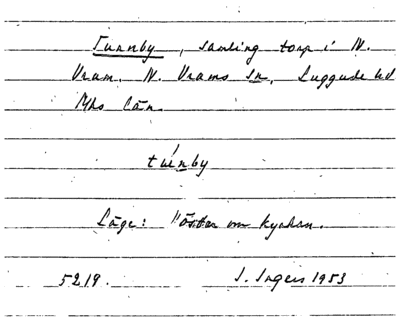 Tunnby, samling torp i N.
Vram. N. Vrams sn, Luggude hd
Mhs län.
tunby
Läge: Väster om kyrkan.
5219. I. Ingers 1953